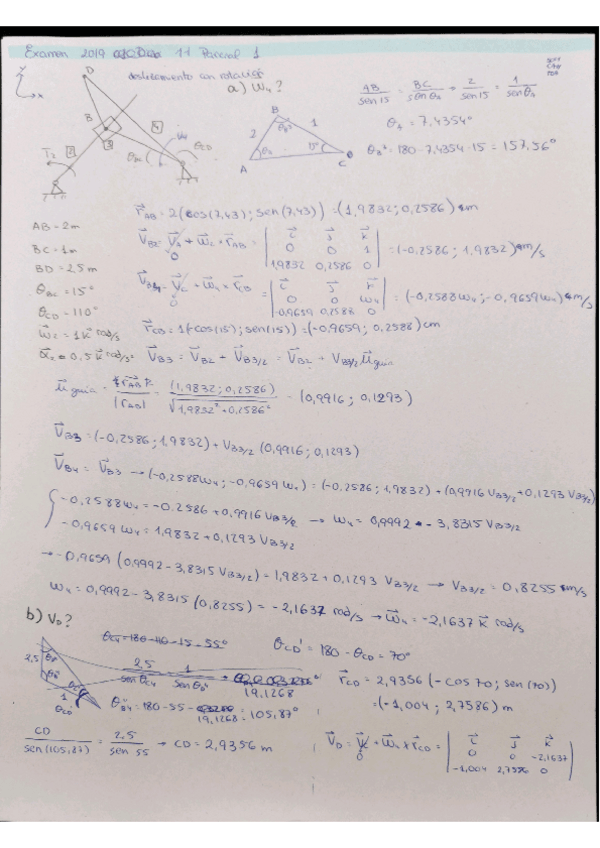 Examen 2019 11 Parcial 1
deslizamiento con rotación
a) W₄?
Y
x
D
B
2
3
4
T₂
θBC
θCD
W₄
B
2
1
A
C
15°
AB/sen 15 = BC/sen θA → 2/sen 15 = 1/sen θA
θA = 7,4354°
θB = 180 - 7,4354 - 15 = 157,56°
AB = 2m
BC = 1m
BD = 2.5 m
θBC = 15°
θCD = 110°
ω⃗₂ = 1 k⃗ rad/s
α⃗₂ = 0,5 k⃗ rad/s²
r⃗AB = 2(cos(7,43); sen(7,43)) = (1,9832; 0,2586) m
V⃗B2 = V⃗A + ω⃗₂ × r⃗AB = | i⃗ j⃗ k⃗ | 0 0 1 | 1,9832 0,2586 0 | = (-0,2586; 1,9832) m/s
V⃗B4 = V⃗C + ω⃗₄ × r⃗CB = | i⃗ j⃗ k⃗ | 0 0 ω₄ | -0,9659 0,2588 0 | = (-0,2588ω₄; -0,9659ω₄) m/s
r⃗CB = 1(-cos(15); sen(15)) = (-0,9659; 0,2588) cm
V⃗B3 = V⃗B2 + V⃗B3/2 = V⃗B2 + VB3/2 u⃗guia
u⃗guia = r⃗AB/|rAB| = (1,9832; 0,2586)/√1,9832² + 0,2586² = (0,9916; 0,1293)
V⃗B3 = (-0,2586; 1,9832) + VB3/2 (0,9916; 0,1293)
V⃗B4 = V⃗B3 → (-0,2588ω₄; -0,9659 ω₄) = (-0,2586; 1,9832) + (0,9916 VB3/2 + 0,1293 VB3/2)
-0,2588 ω₄ = -0.2586 + 0,9916 VB3/2 → ω₄ = 0,9992 - 3,8315 VB3/2
-0,9659 ω₄ = 1,9832 + 0,1293 VB3/2
→ -0,9659 (0,9992 - 3,8315 VB3/2) = 1,9832 + 0,1293 VB3/2 → VB3/2 = 0,8255 m/s
ω₄ = 0,9992 - 3,8315 (0,8255) = -2,1637 rad/s → ω⃗₄ = -2,1637 k⃗ rad/s
b) VD?
θC4 = 180 - 110 - 15 = 55°
θCD' = 180 - θCD = 70°
2,5
θD
θB4
θC4
1
θCD'
2,5/sen θC4 = 1/sen θD
19,1268
r⃗CD = 2,9356 (-cos 70; sen(70))
= (-1,004; 2,7586) m
θB4 = 180 - 55 - 19,1268 = 105,87°
CD/sen(105,87) = 2,5/sen 55 → CD = 2,9356 m
V⃗D = V⃗C + ω⃗₄ × r⃗CD = | i⃗ j⃗ k⃗ | 0 0 -2,1637 | -1,004 2,7586 0 |